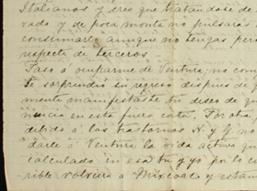 Italianos y creo que tratándose de
rado y de poca monta no pulsará
consumarlo aunque no tengas per
respecto de terceros.
Paso a ocuparme de Ventura; no com
te sorprendió su regreso después de q
mente manifestaste tu deseo de que
nucia en este fuele cate. Por otra
debido a los trastornos N. y Y. no
darle a Ventura la vida activa que
calculado en esa tu y yo por lo cu
rible volviera a Mixcoac y estan